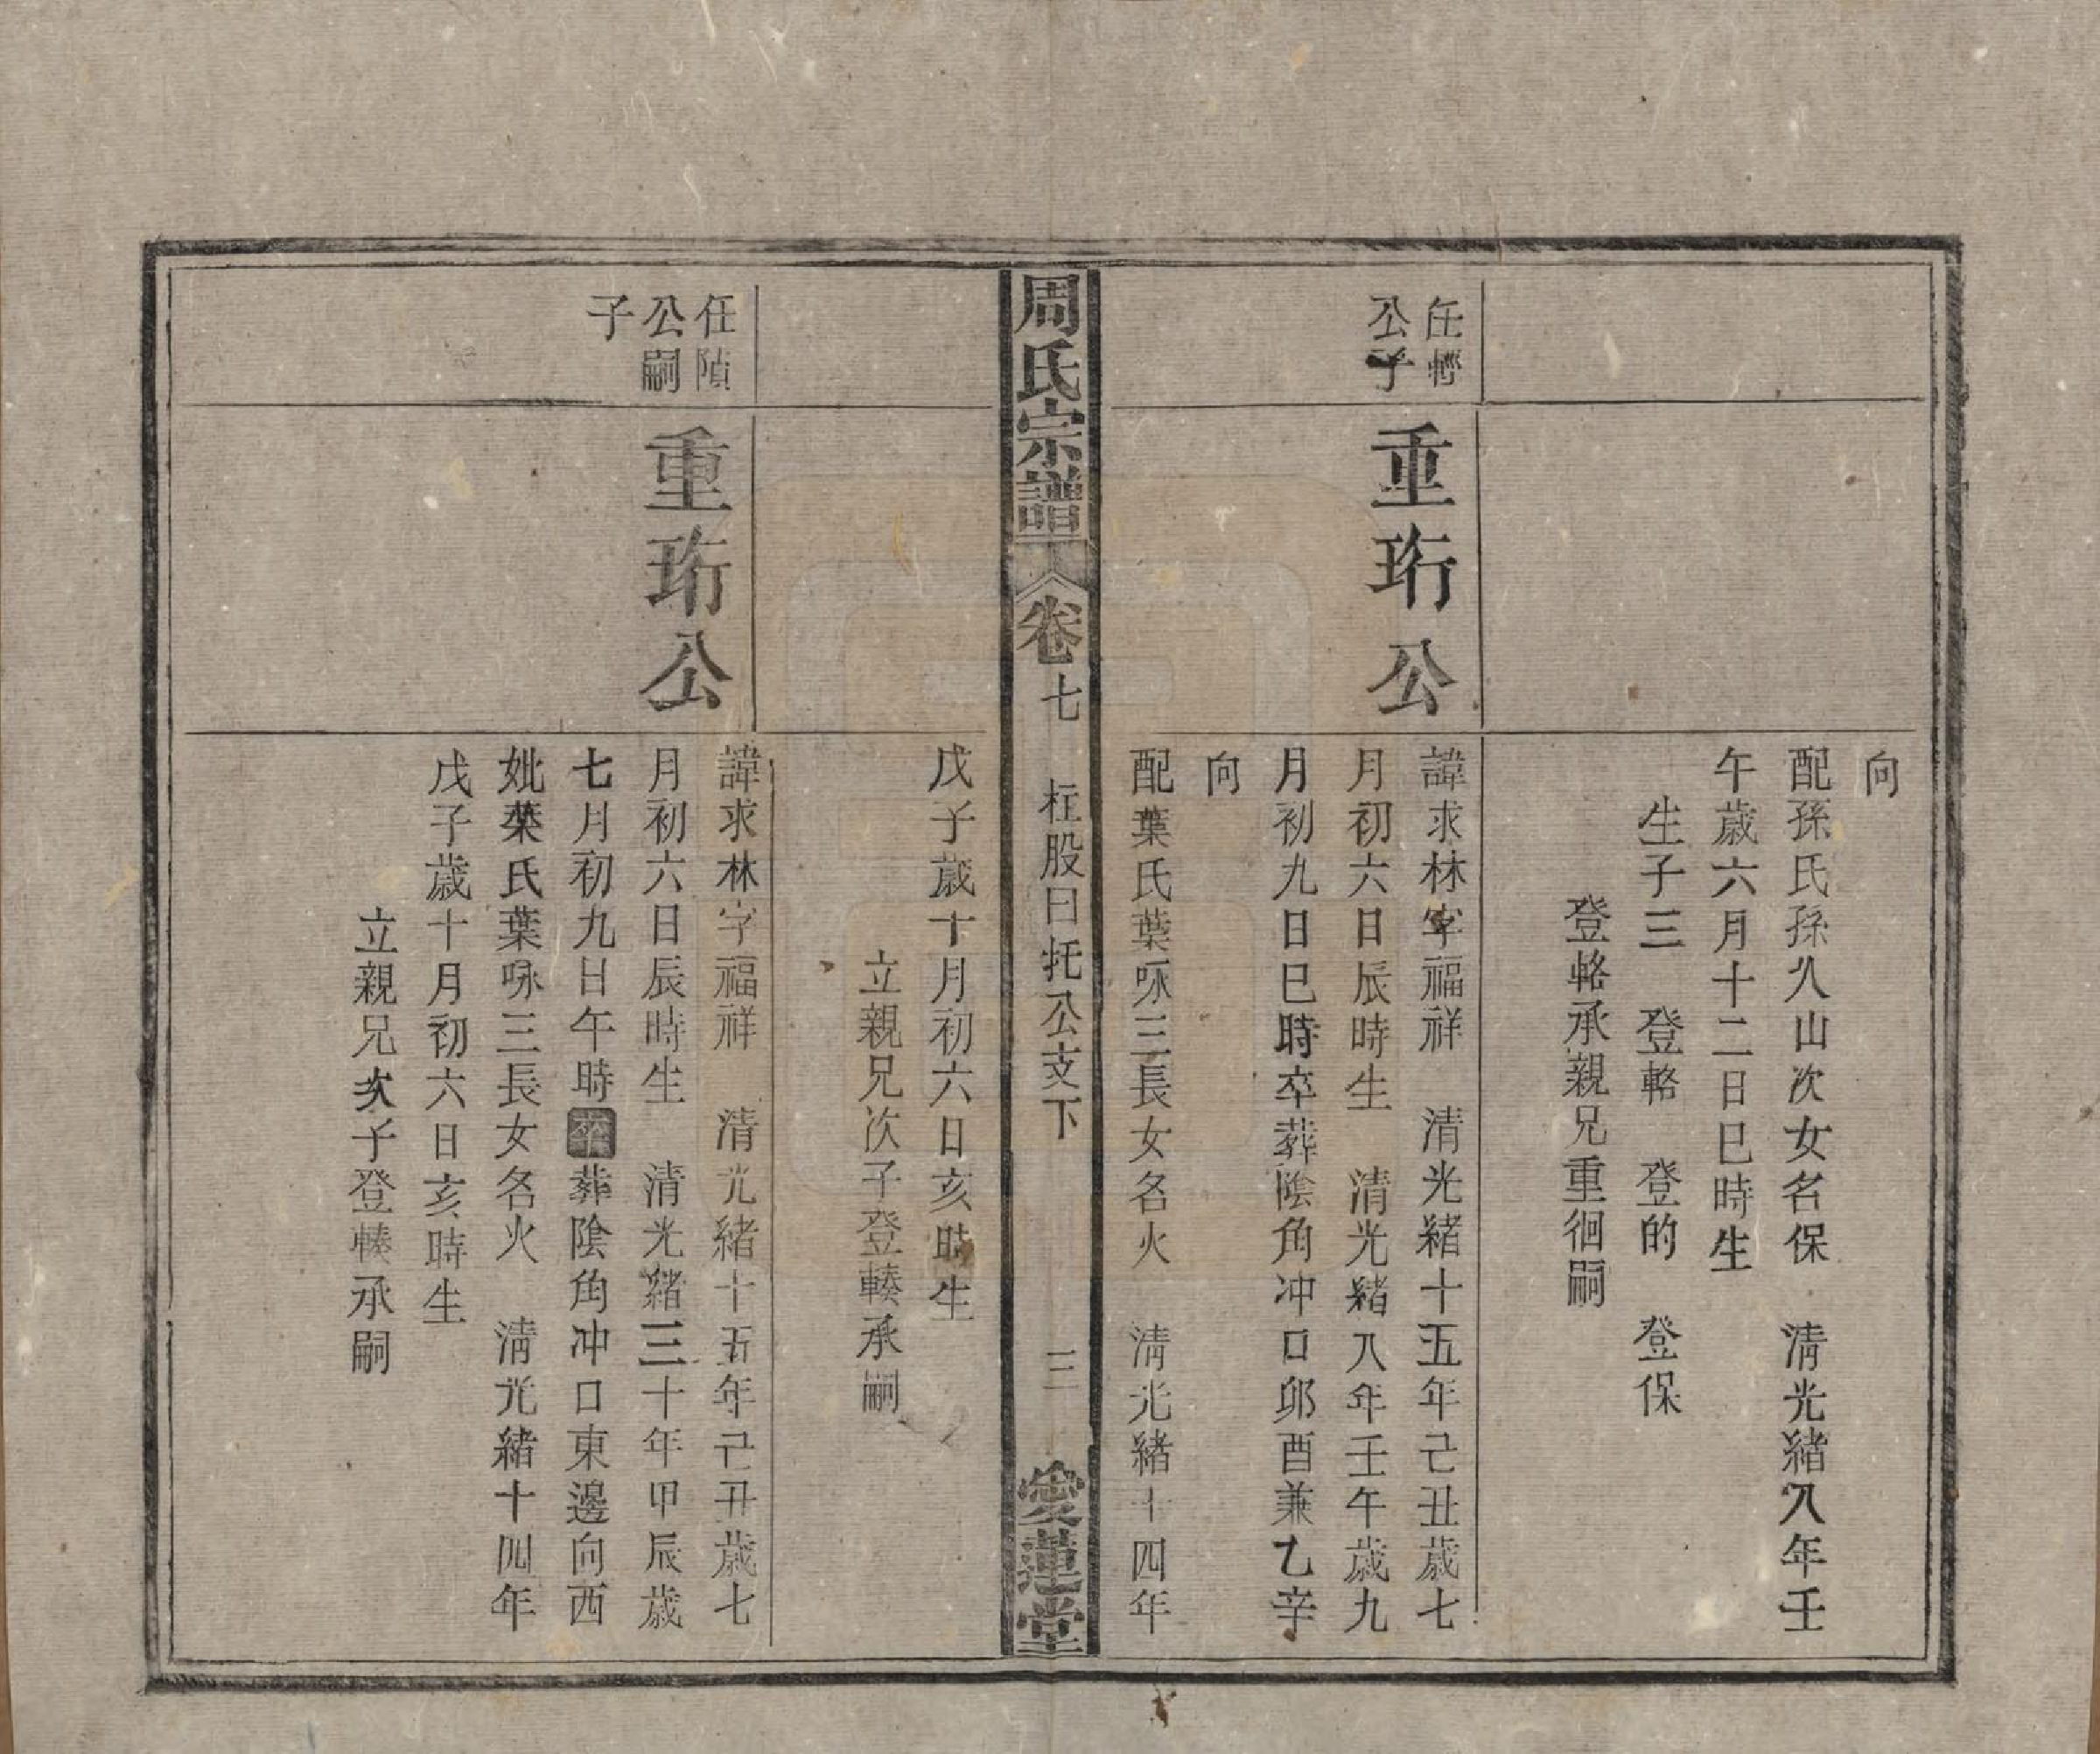 向
配孫氏孫久山次女名保　清光緒八年壬
午歲六月十二日巳時生
生子三　登輅　登的　登保
登輅承親兄重徊嗣
任輕
公子
重珩公
諱求林字福祥　清光緒十五年己丑歲七
月初六日辰時生　清光緒八年壬午歲九
月初九日巳時卒葬陰角冲口卯酉兼乙辛
向
配葉氏葉咏三長女名火　清光緒十四年
周氏宗譜
卷七　枉股曰托公支下　三
愛蓮堂
戊子歲十月初六日亥時生
立親兄次子登輳承嗣
任隫
公嗣
子
重珩公
諱求林字福祥　清光緒十五年己丑歲七
月初六日辰時生　清光緒三十年甲辰歲
七月初九日午時卒葬陰角冲口東邊向西
妣葉氏葉咏三長女名火　清光緒十四年
戊子歲十月初六日亥時生
立親兄次子登輳承嗣